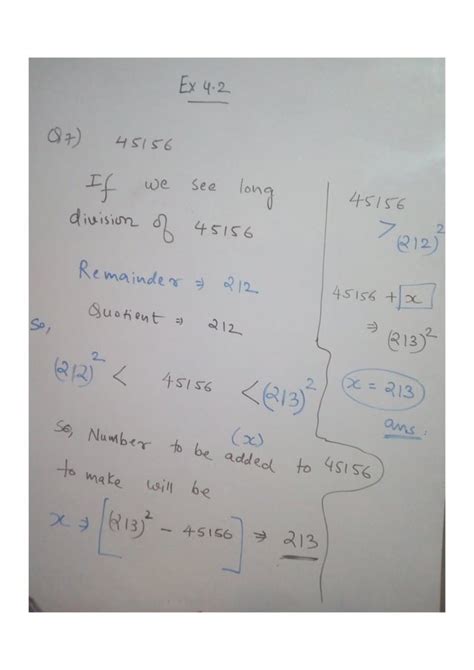 Ex 4.2
Q7) 45156
If we see long
division of 45156
Remainder ⇒ 212
Quotient ⇒ 212
So,
(212)² < 45156 < (213)²
So, Number (x) to be added to 45156
to make will be
x ⇒ [(213)² - 45156] ⇒ 213
45156
> (212)²
45156 + x
⇒ (213)²
x = 213
ans.